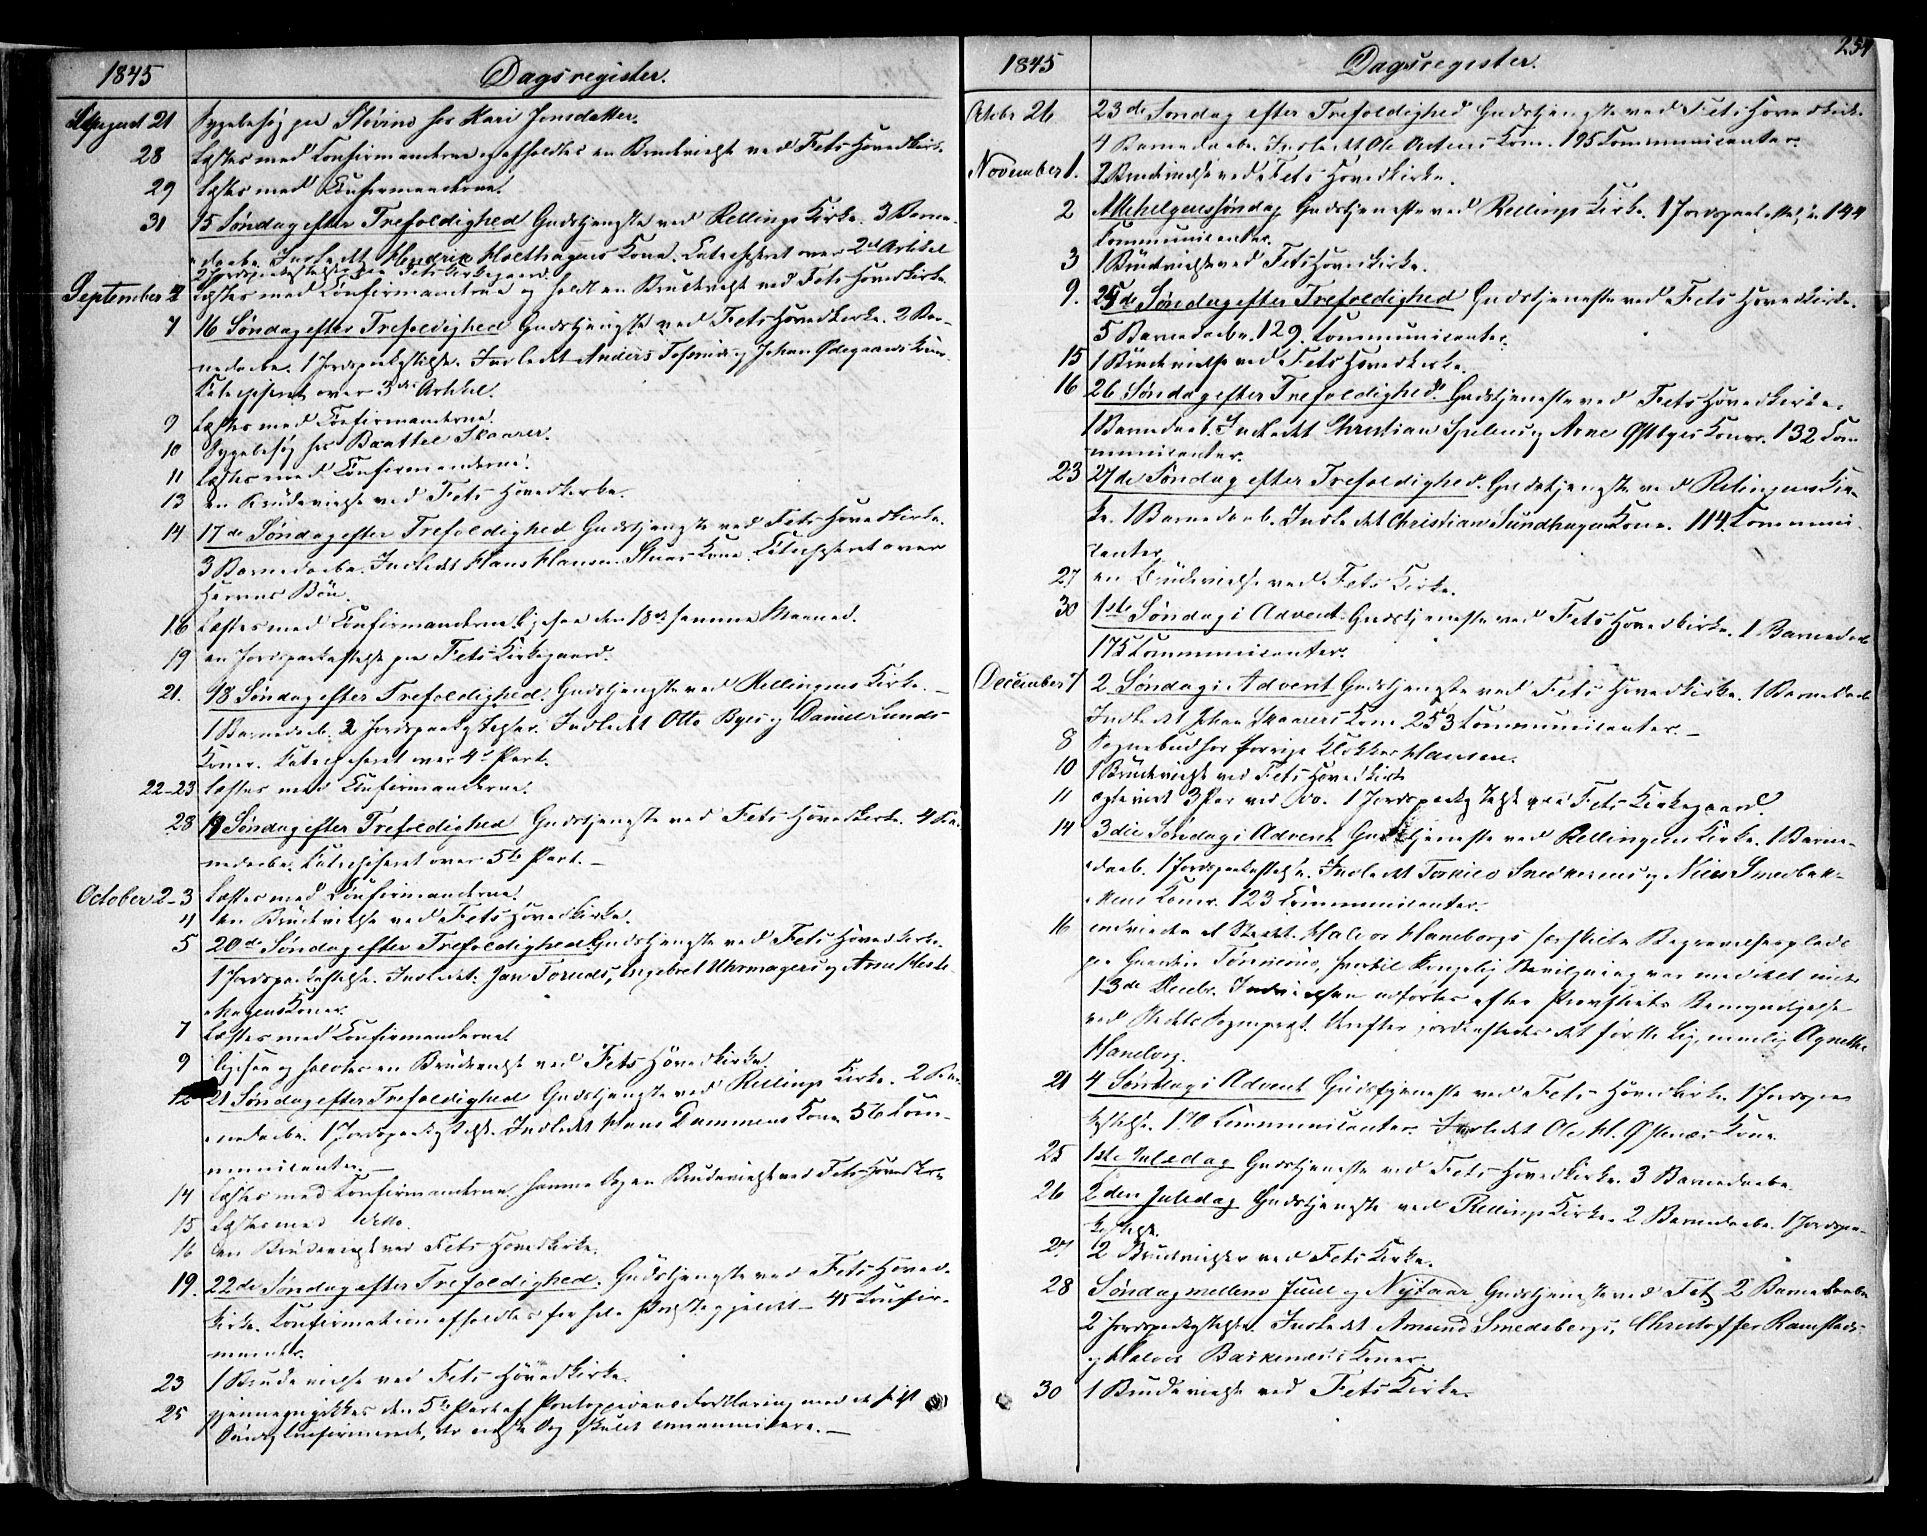 1845 Dagsregister.
August 21 Sygebesøg paa Støvind hos Kari Jonsdatter.
28 Læstes med Confirmanderne og afholdtes en Brudevielse ved Fets Hovedkirke.
29 Læstes med Confirmanderne.
31 15 Søndag efter Trefoldighed Gudstjeneste ved Rellings Kirke. 3 Barne-
daabe. Indledt Hendrik Holthagens Kone. Catechiseret over 2d Artikel
2 Jordspaakastelser paa Fets Kirkegaard
September 2 Læstes med Confirmanderne og holdt en Brudevielse ved Fets Hovedkirke
7 16 Søndag efter Trefoldighed Gudstjeneste ved Fets Hovedkirke. 2 Bar-
nedaabe. 1 Jordspaakastelse. Indledt Anders og Johan Ødegaards Koner.
Catechiseret over 3die Artikel.
9 Læstes med Confirmanderne.
10 Sygebesøg hos Baattel Skaarer.
11 Læstes med Confirmanderne.
13 en Brudevielse ved Fets Hovedkirke.
14 17de Søndag efter Trefoldighed Gudstjeneste ved Fets Hovedkirke.
3 Barnedaabe. Indledt Hans Hansen Stuers Kone. Catechiseret over
Herrens Bøn.
16 Læstes med Confirmanderne ligesaa den 18de samme Maaned.
19 en Jordspaakastelse paa Fets Kirkegaard.
21. 18 Søndag efter Trefoldighed. Gudstjeneste ved Rellingens Kirke. —
1 Barnedaab. 2 Jordspaakastelser. Indledt Otto Byes og Daniel Lunds
Koner. Catechiseret over 4de Part.
22-23 Læstes med Confirmanderne.
28 19 Søndag efter Trefoldighed Gudstjeneste ved Fets Hovedkirke. 4 Bar-
nedaabe. Catechiseret over 5te Part. —
October 2-3 Læstes med Confirmanderne.
4 en Brudevielse ved Fets Hovedkirke.
5 20de Søndag efter Trefoldighed Gudstjeneste ved Fets Hovedkirke.
1 Jordspaakastelse. Indledt: Jan Toruds, Ingebret Uhrmagers og Arne Heste-
hagens Koner.
7 Læstes med Confirmanderne
9 ligesaa og holdtes en Brudevielse ved Fets Hovedkirke.
12 21 Søndag efter Trefoldighed Gudstjeneste ved Rellings Kirke. 2 Bar-
nedaabe. 1 Jordspaakastelse. Indledt Hans Dammens Kone 56 Com-
municanter. —
14 Læstes med Confirmanderne. samme Dag en Brudevielse ved Fets Hovedkirke
15 Læstes med ditto.
16 en Brudevielse ved Fets Hovedkirke.
19. 22de Søndag efter Trefoldighed. Gudstjeneste ved Fets Hoved-
kirke. Confirmation afholdtes for hele Præstegjældet — 45 Confir-
mander.
23 1 Brudevielse ved Fets Hovedkirke.
25 gjennemgikkes den 5te Part af Pontoppidans Forklaring med de sidst
Confirmerede, der næste Dag skulde communicere. —
1845 Dagsregister. 254
Octobr 26 23de Søndag efter Trefoldighed Gudstjeneste ved Fets Hovedkirke.
4 Barnedaabe. Indledt Ole Kone. 195 Communicanter.
November 1. 2 Brudevielse ved Fets Hovedkirke.
2 Allehelgenssøndag Gudstjeneste ved Rellings Kirke. 1 Jordspaakastelse 144
Communicanter.
3 1 Brudevielse ved Fets Hovedkirke.
9. 25de Søndag efter Trefoldighed Gudstjeneste ved Fets Hovedkirke.
5 Barnedaabe. 129. Communicanter.
15 1 Brudevielse ved Fets Hovedkirke.
16 26 Søndag efter Trefoldighed Gudstjeneste ved Fets Hovedkirke.
1 Barnedaab. Indledt Christian og Arne Østbyes Koner. 132 Com-
municanter.
23 27de Søndag efter Trefoldighed. Gudstjeneste ved Relingens Kir-
ke. 1 Barnedaab. Indledt Christian Sundhagens Kone. 114. Communi
canter
27 en Brudevielse ved Fets Kirke.
30 1ste Søndag i Advent. Gudstjeneste ved Fets Hovedkirke. 1 Barnedaab
175 Communicanter.
December 7 2. Søndag i Advent Gudstjeneste ved Fets Hovedkirke. 1 Barnedaab
Indledt Johan Skaarers Kone 253 Communicanter. —
8 Sognebud hos forrige Klokker Hansen.
10 1 Brudevielse ved Fets Hovedkirke
11 ægteviet 3 Par ved do. 1 Jordspaakastelse paa Fets Kirkegaard.
14 3die Søndag i Advent Gudstjeneste ved Rellingens Kirke. 1 Barne-
daab. 1 Jordspaakastelse. Indledt Torkild Snedkerens og Niels Smedbak-
kens Koner. 123 Communicanter.
16 indviedes et Halvor Haneborgs særskilte Begravelsesplads
paa Gaarden hvortil Kongelig Bevilgning var meddelt under
13de Decbr. Indvielsen udførtes efter Provstiets Bemyndigelse
ved Stedets Sognepræst. Derefter jordfæstedes det første Lig, nemlig Agnethe
Haneborg.
21 4 Søndag i Advent Gudstjeneste ved Fets Hovedkirke 1 Jordspaa
kastelse. 170 Communicanter. Indledt Ole H. Østenæs Kone.
25 1ste Juledag Gudstjeneste ved Fets Hovedkirke. 3 Barnedaabe.
26 2den Juledag Gudstjeneste ved Rellings Kirke. 2 Barnedaabe. 1 Jordspaa-
kastelse.
27. 2 Brudevielser ved Fets Kirke.
28 Søndag mellem Juul og Nytaar Gudstjeneste ved Fet 2 Barnedaabe
2 Jordspaakastelser. Indledt Amund Smedsbergs, Christoffer Ramstads
og Halvor Bakkenæs's Koner.
30 1 Brudevielse ved Fets Kirke.